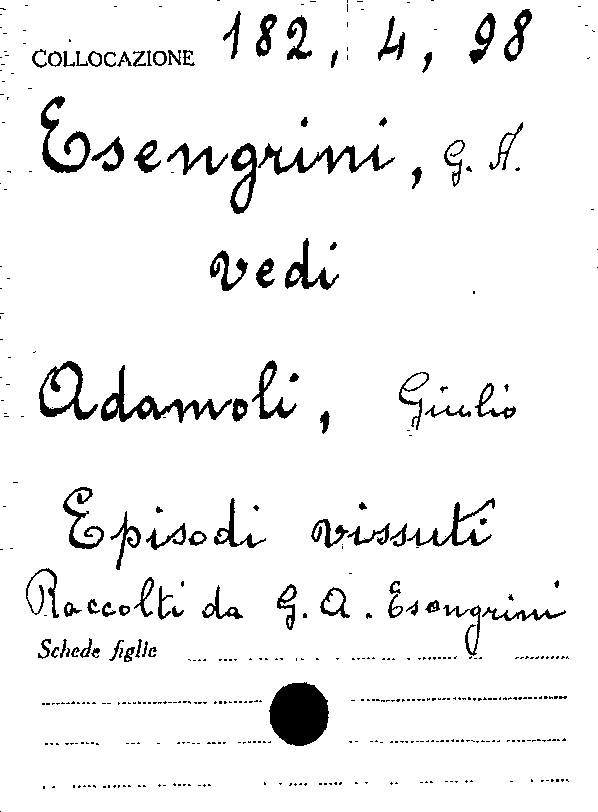 COLLOCAZIONE 182, 4, 98
Esengrini, G. A.
vedi
Adamoli, Giulio
Episodi vissuti
Raccolti da G. A. Esengrini
Schede figlie